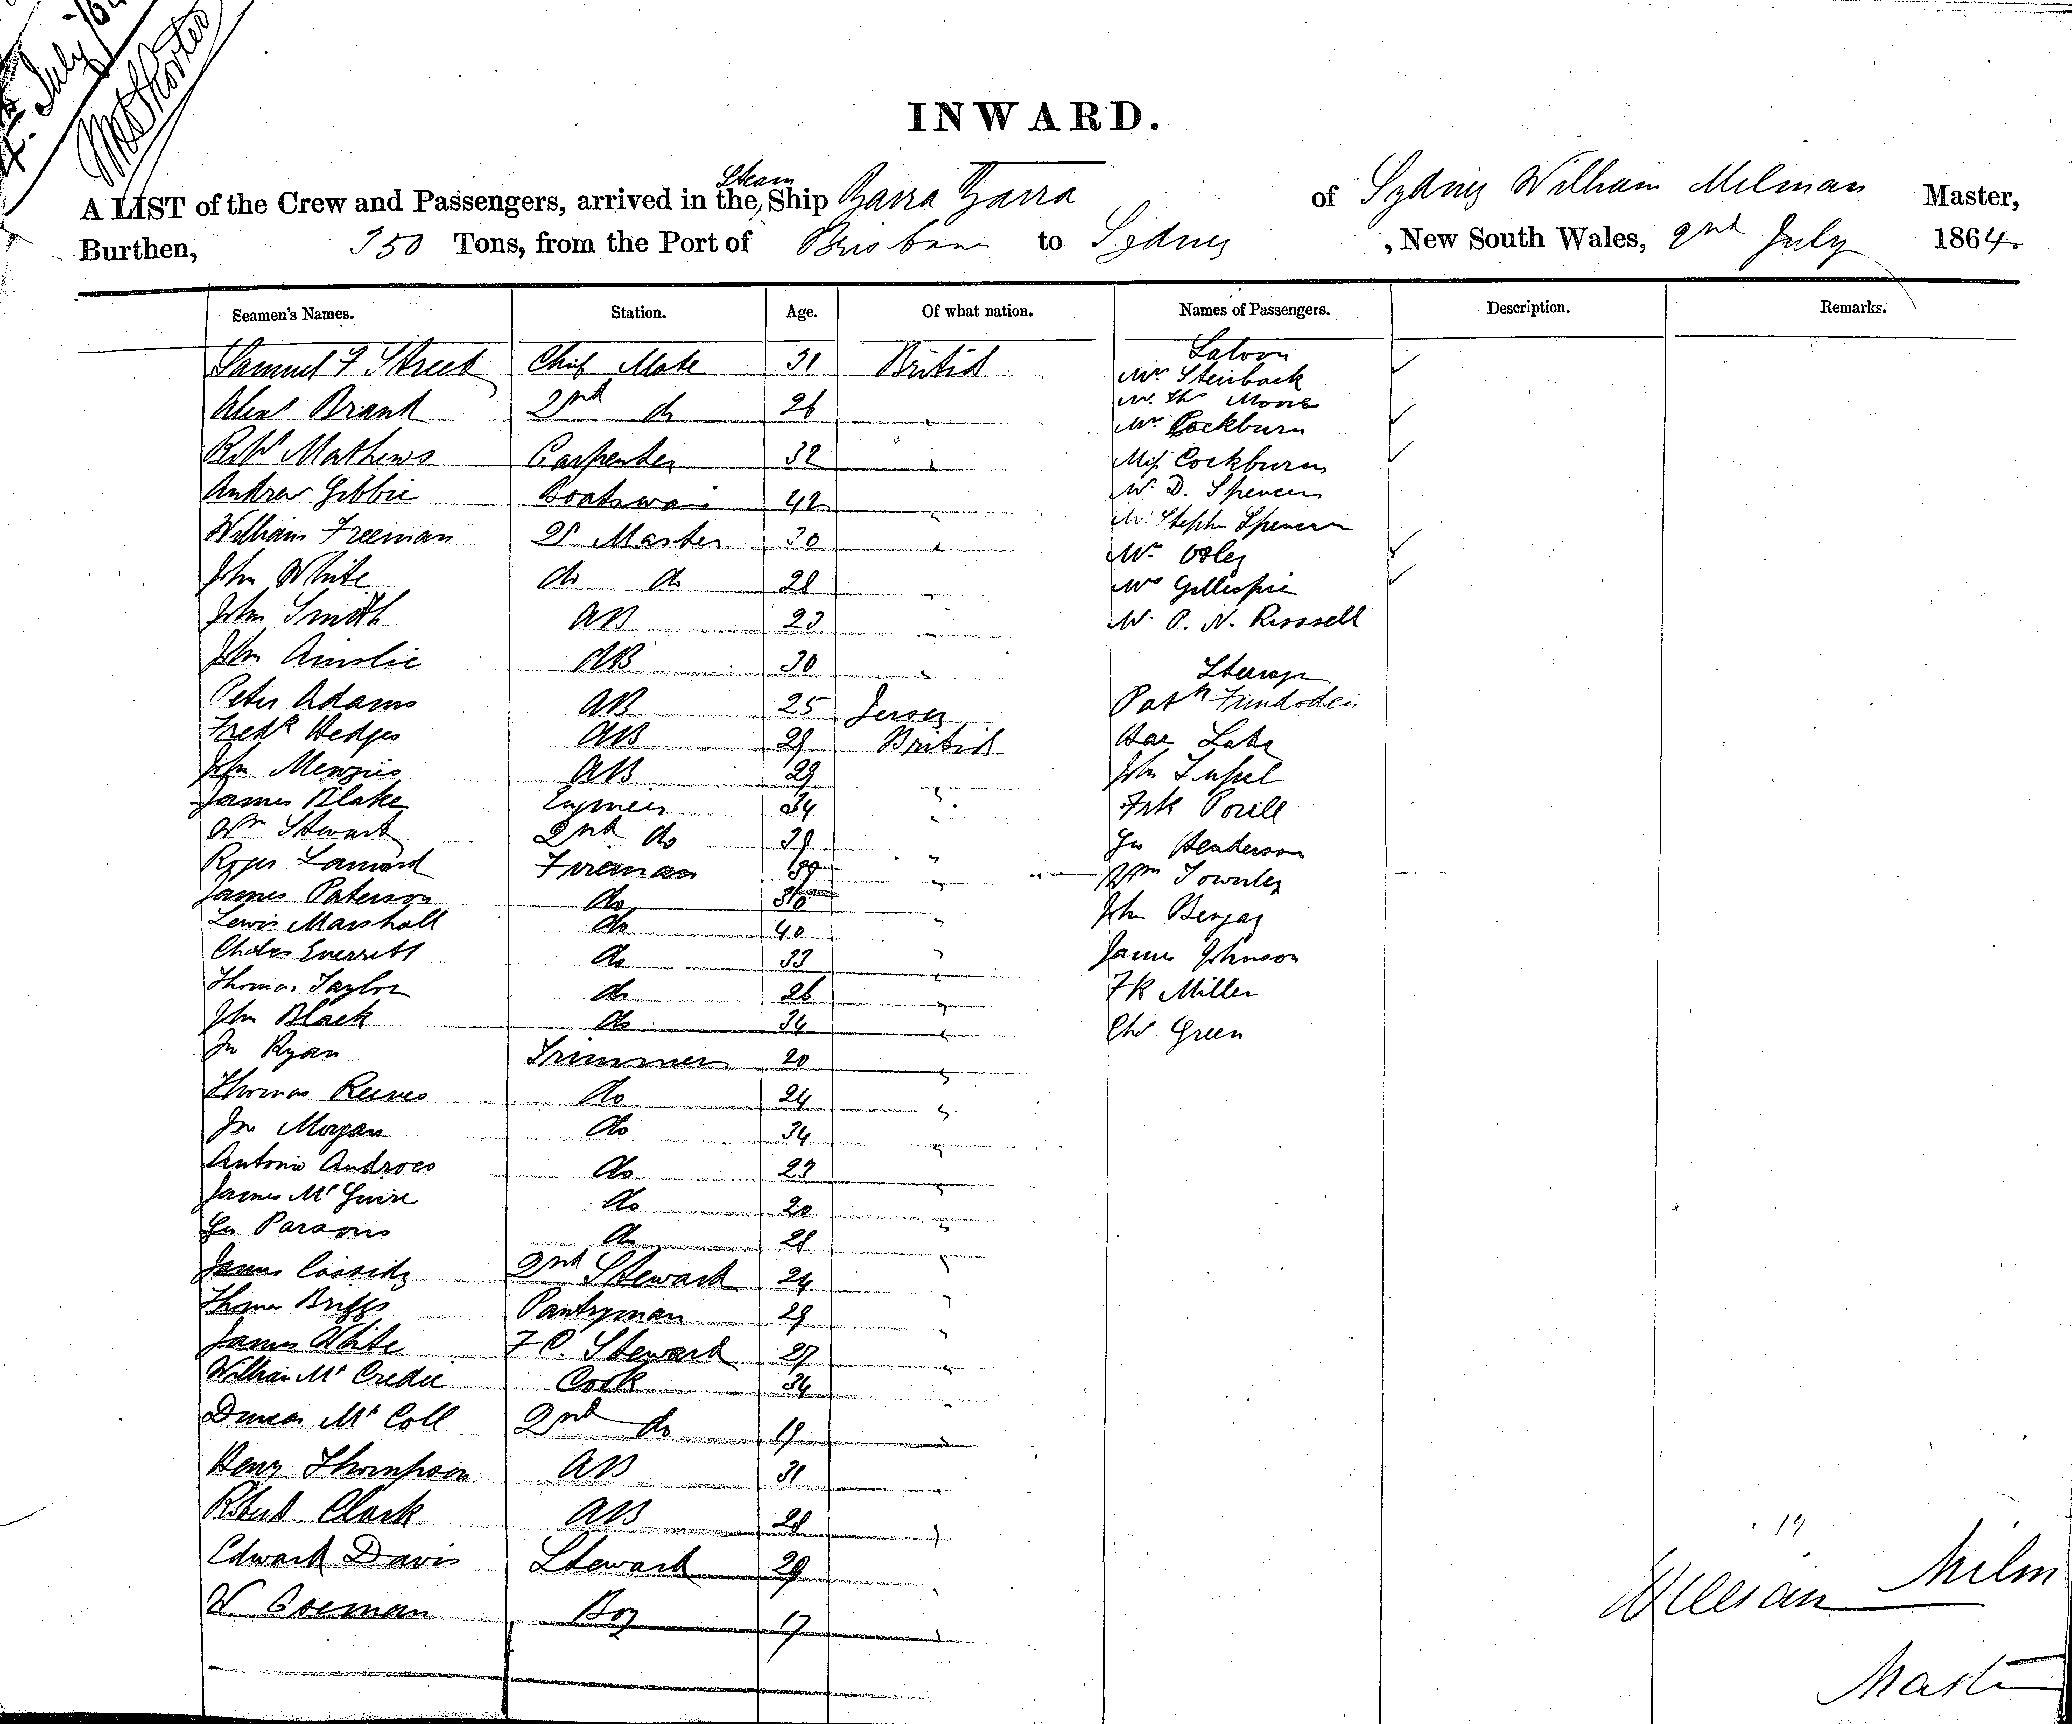 July
INWARD.
Steam
A LIST of the Crew and Passengers, arrived in the Ship Yarra Yarra of Sydney William Milman Master,
Burthen, 350 Tons, from the Port of Brisbane to Sydney , New South Wales, 2nd July 1864.
Seamen's Names. Station. Age. Of what nation. Names of Passengers. Description. Remarks.
Saloon
Samuel F Street Chief Mate 31 British Mr Steinback
Mr Ths Moore
Alexr Brand 2nd do 26 " Mr Cockburn
Mathews Carpenter 32 " Miss Cockburn
Andrew Gibbie Boatswain 42 " Mr D. Spencer
William Freeman Qr Master 30 " Mr Stephn Spencer
Mr
John White do do 28 " Mr Gillespie
John Smith AB 23 " Mr P. N. Russell
John Ainslie AB 30 " Steerage
Peter Adams AB 25 Jersey Patk
Fredk Hedges AB 29 British
John Menzies AB 29 " John
James Blake Engineer 34 " Frk
Wm Stewart 2nd do 39 " Henderson
Roger Fireman 39 " Wm Townley
James Paterson do "
Lewis Marshall do 40 " John
Charles Everett do 33 " James Johnson
Thomas Taylor do 26 " Fk Miller
John Black do 34 " Chs Green
Jn Ryan Trimmer 20 "
Thomas Reeves do 24 "
Jn Morgan do 34 "
Antonio Androes do 23 "
James McGuire do 20 "
Parsons do 28 "
James Cassidy 2nd Steward 24 "
Thomas Briggs Pantryman 29 "
James White F C. Steward 27 "
William McCredie Cook 34 "
Duncan McColl 2nd do 19 "
Henry Thompson AB 31 "
Robert Clark AB 28 "
19
Edward Davis Steward 29 "
William Milm
W Boy 17 "
Master